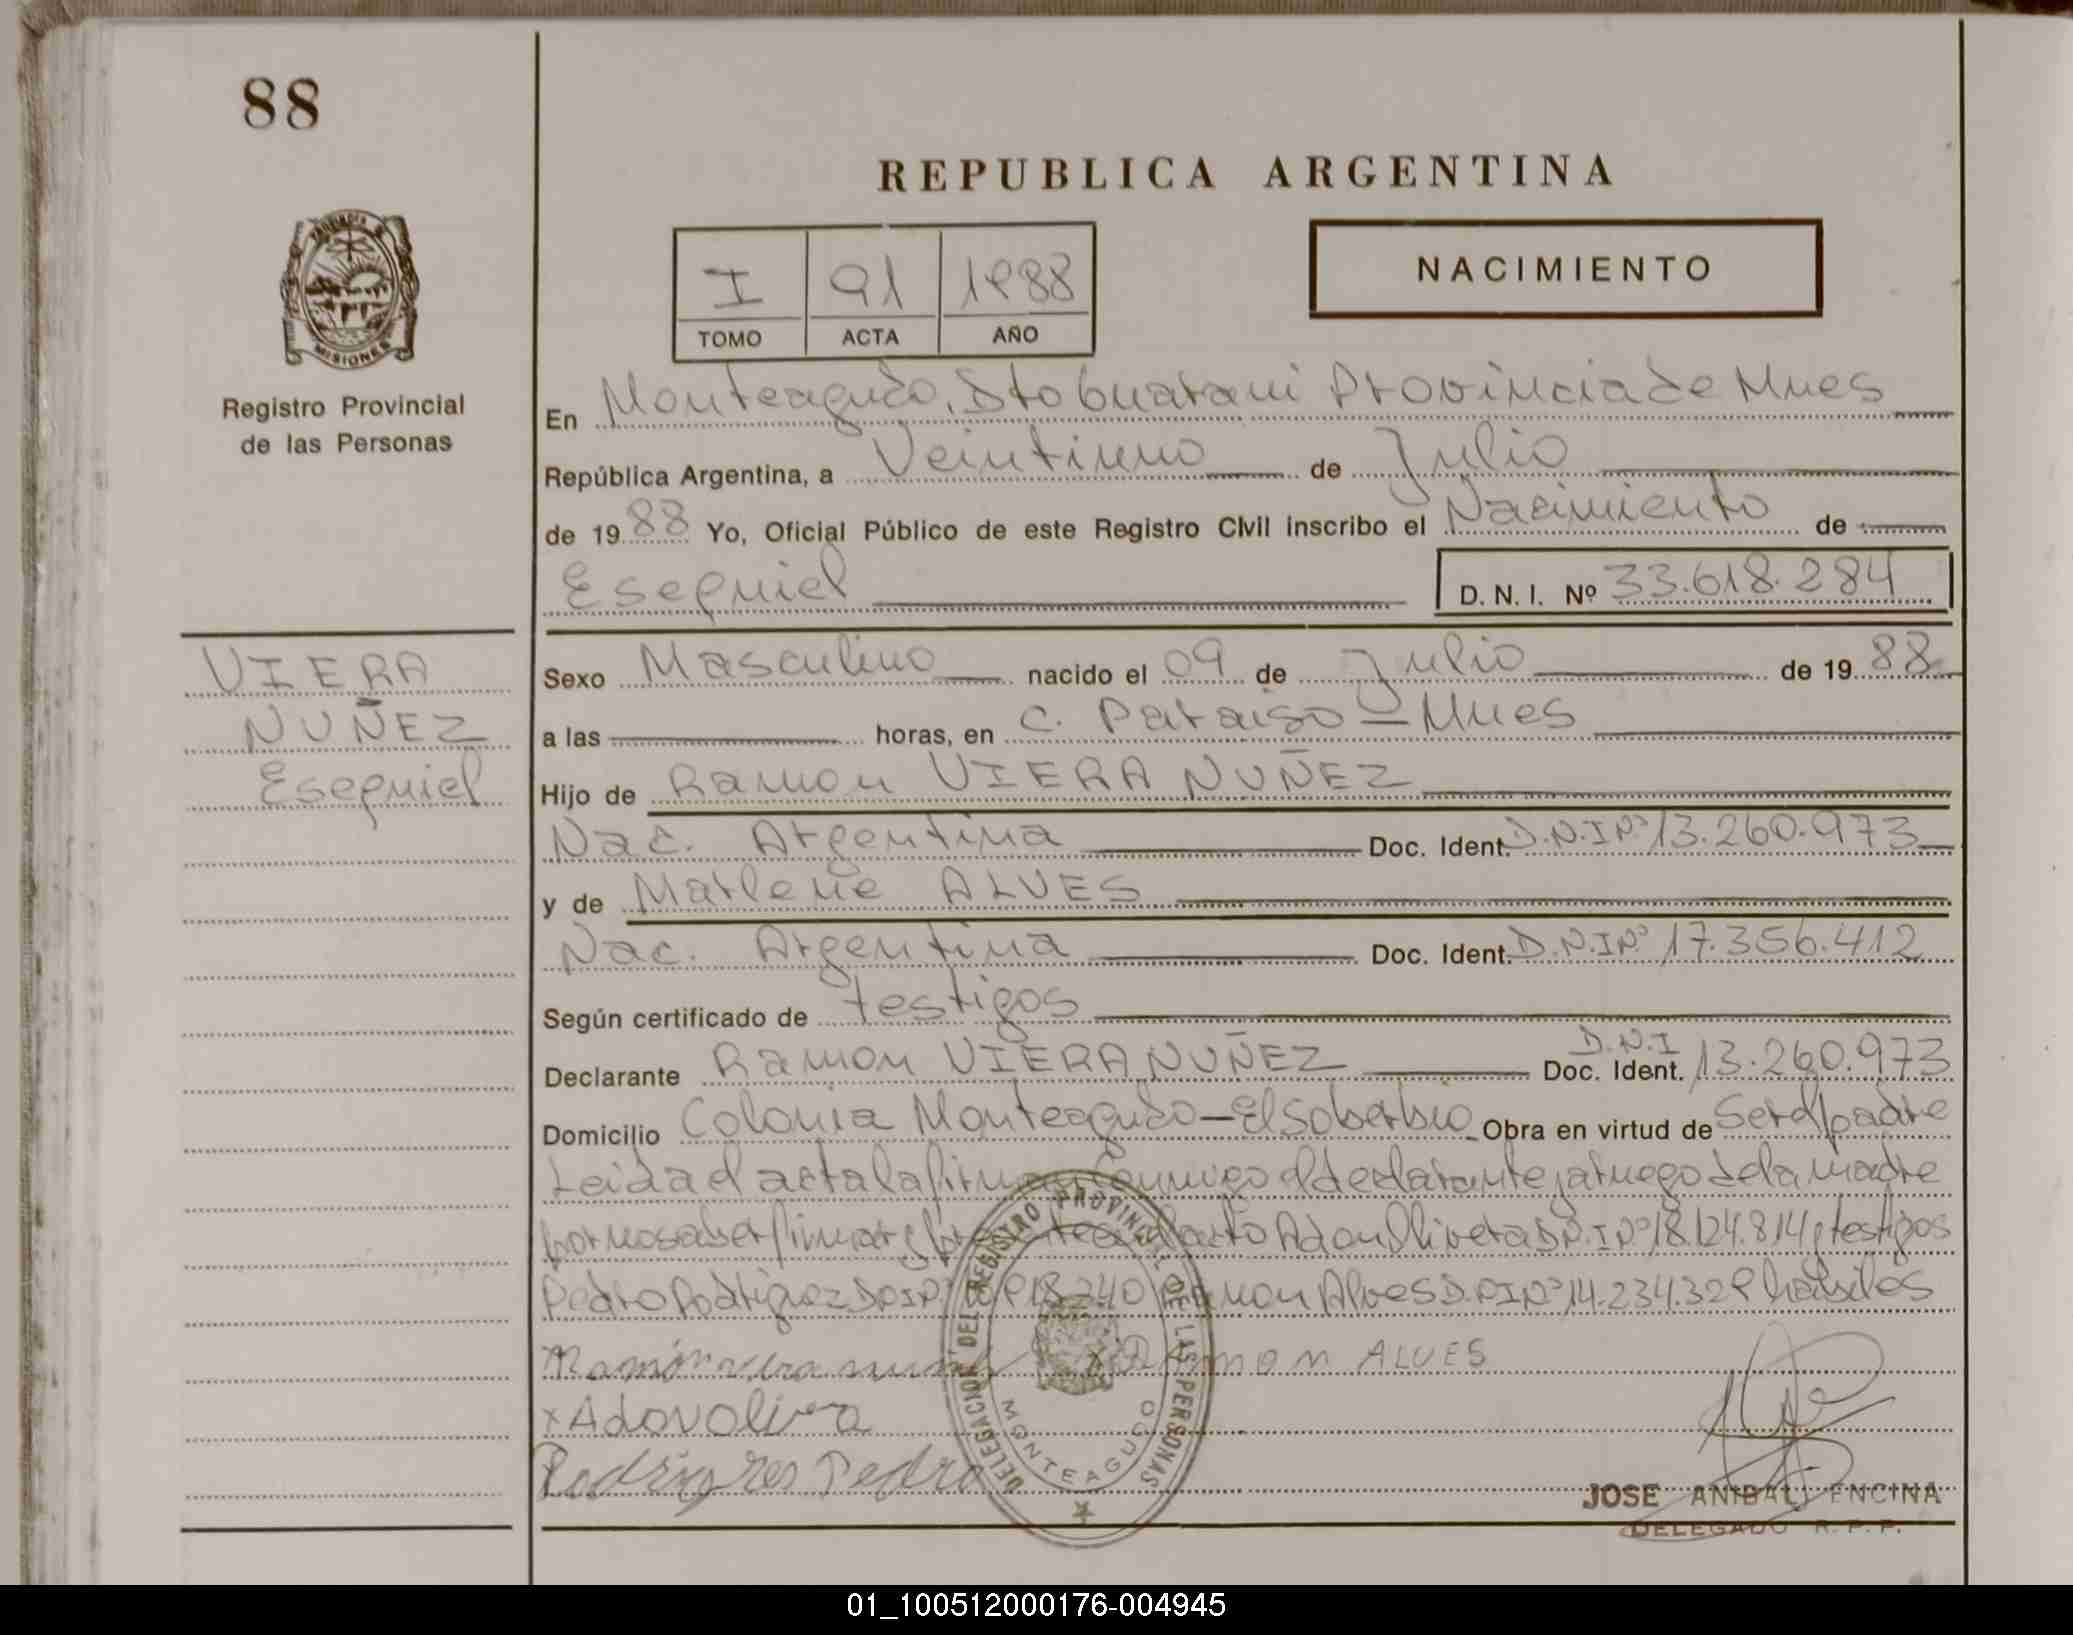 88
REPUBLICA ARGENTINA
NACIMIENTO
I 91 1988
TOMO ACTA AÑO
PROVINCIA DE
MISIONES
Registro Provincial
de las Personas
En Monteagudo, Dto Guarani Provincia de Mnes
República Argentina, a Veintiuno de Julio
de 1988 Yo, Oficial Público de este Registro Civil inscribo el Nacimiento de
Esequiel D. N. I. Nº 33.618.284
VIERA
NUÑEZ
Esequiel
Sexo Masculino nacido el 09 de Julio de 1988
a las horas, en C. Paraiso - Mnes
Hijo de Ramon VIERA NUÑEZ
Nac. Argentina Doc. Ident. D.N.I Nº 13.260.973
y de Marlene ALVES
Nac. Argentina Doc. Ident. D.N.I Nº 17.356.412
Según certificado de testigos
Declarante Ramon VIERA NUÑEZ Doc. Ident. D.N.I 13.260.973
Domicilio Colonia Monteagudo - El Soberbio Obra en virtud de Ser el padre
Leida el acta la firman conmigo el declarante y a ruego de la madre
por no saber firmar Adon Olivera D.N.I Nº 18.124.814 y testigos
Pedro Rodriguez D.N.I Nº 18.240 Ramon Alves D.N.I Nº 14.234.329 habiles
Ramón viera nuñez RAMON ALVES
x Adon olivera
Rodrigres Pedro
DELEGACION DEL REGISTRO PROVINCIAL DE LAS PERSONAS
MONTEAGUDO
JOSE ANIBAL ENCINA
DELEGADO R. P. P.
01_100512000176-004945